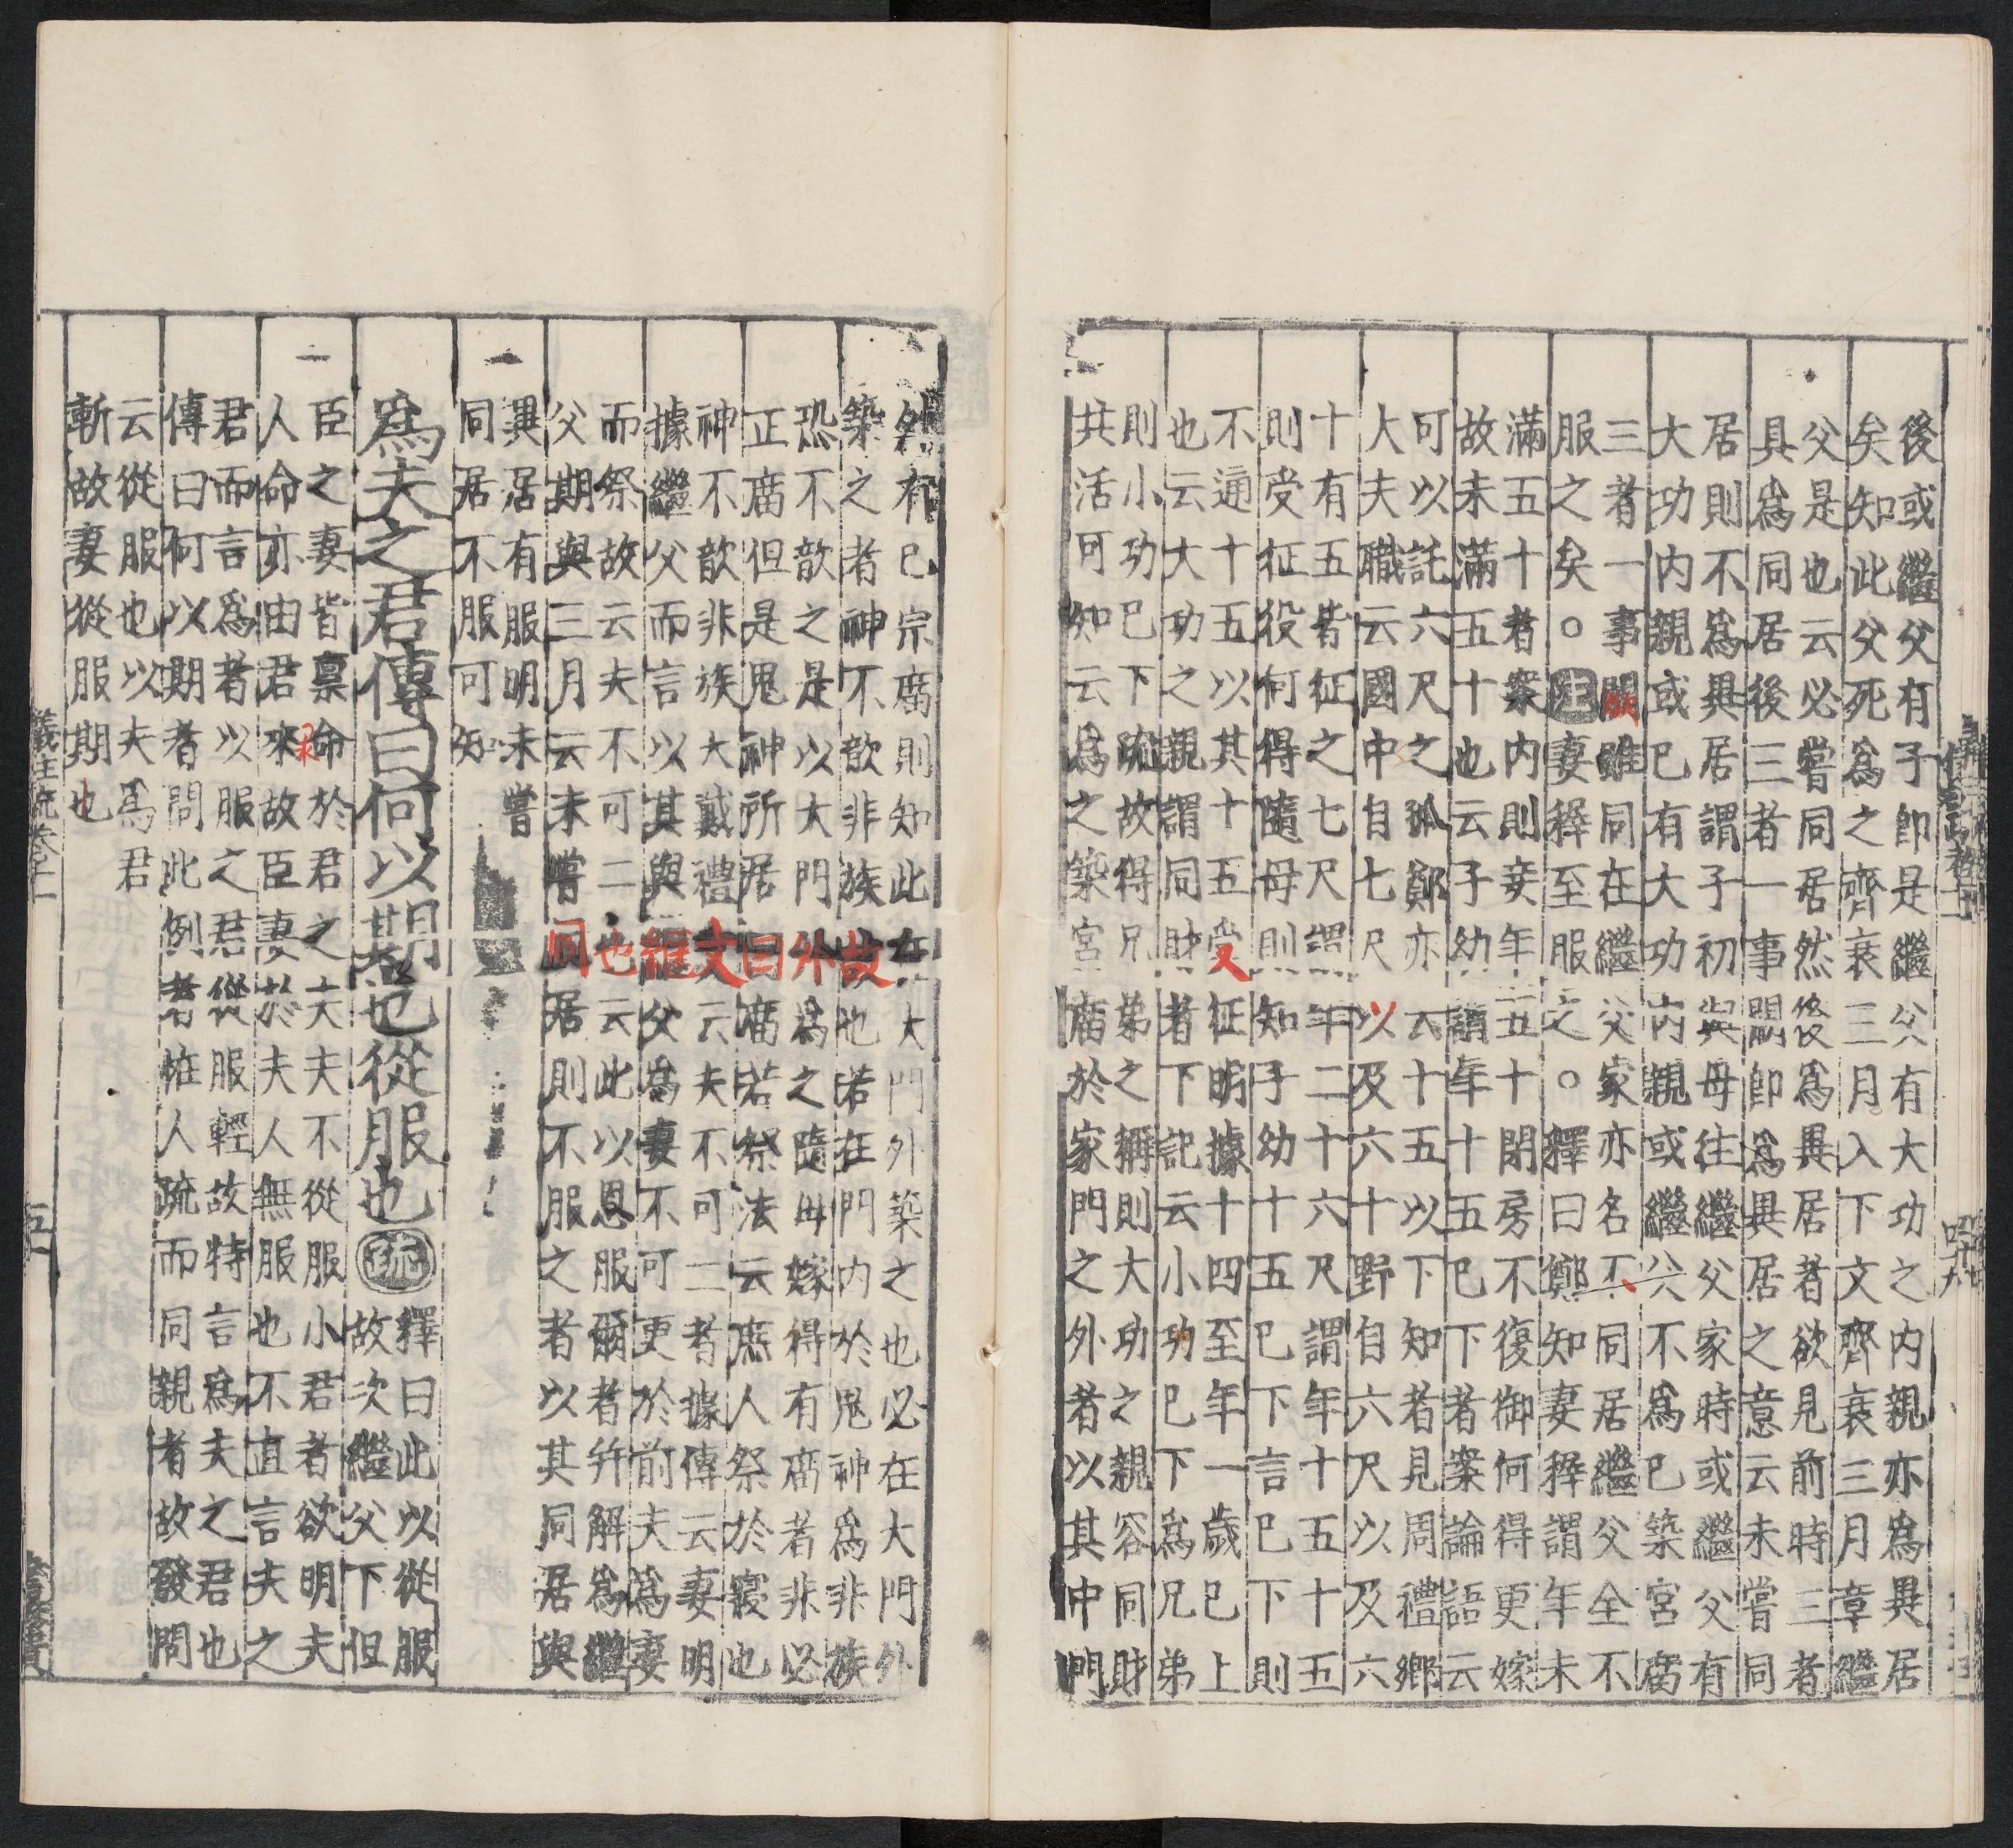 後或繼父有子即是繼父有大功之内親亦爲異居
矣知此父死爲之齊衰三月入下文齊衰三月章繼
父是也云必嘗同居然後爲異居者欲見前時三者
具爲同居後三者一事闕即爲異居之意云未嘗同
居則不爲異居謂子初與母往繼父家時或繼父有
大功内親或已有大功内親或繼父不爲已築宮廟
三者一事闕雖同在繼父家亦名不同居繼父全不
服之矣○注妻穉至服之○釋曰鄭知妻穉謂年未
滿五十者案内則妾年五十閉房不復御何得更嫁
故未滿五十也云子幼謂年十五已下者案論語云
可以託六尺之孤鄭亦云十五以下知者見周禮鄉
大夫職云國中自七尺以及六十野自六尺以及六
十有五皆征之七尺謂年二十六尺謂年十五十五
則受征役何得隨母則知子幼十五已下言已下則
不通十五以其十五受征明據十四至年一歲已上
也云大功之親謂同財者下記云小功已下爲兄弟
則小功已下疏故得兄弟之稱則大功之親容同財
共活可知云爲之築宮廟於家門之外者以其中門
外有已宗廟則知此在大門外築之也必在大門外
築之者神不歆非族故也若在門内於鬼神爲非族
恐不歆之是以大門外爲之隨母嫁得有廟者非必
正廟但是鬼神所居曰廟若祭法云庶人祭於寢也
神不歆非族大戴禮文云夫不可二者據傳云妻明
據繼父而言以其與繼父爲妻不可更於前夫爲妻
而祭故云夫不可二也云此以恩服爾者幷解爲繼
父期與三月云未嘗同居則不服之者以其同居與
異居有服明未嘗
同居不服可知
爲夫之君傳曰何以期也從服也疏
釋曰此以從服
故次繼父下但
臣之妻皆稟命於君之夫夫不從服小君者欲明夫
人命亦由君來故臣妻於夫人無服也不直言夫之
君而言爲者以服之君從服輕故特言爲夫之君也
傳曰何以期者問此例者雖人疏而同親者故發問
云從服也以夫爲君
斬故妻從服期也